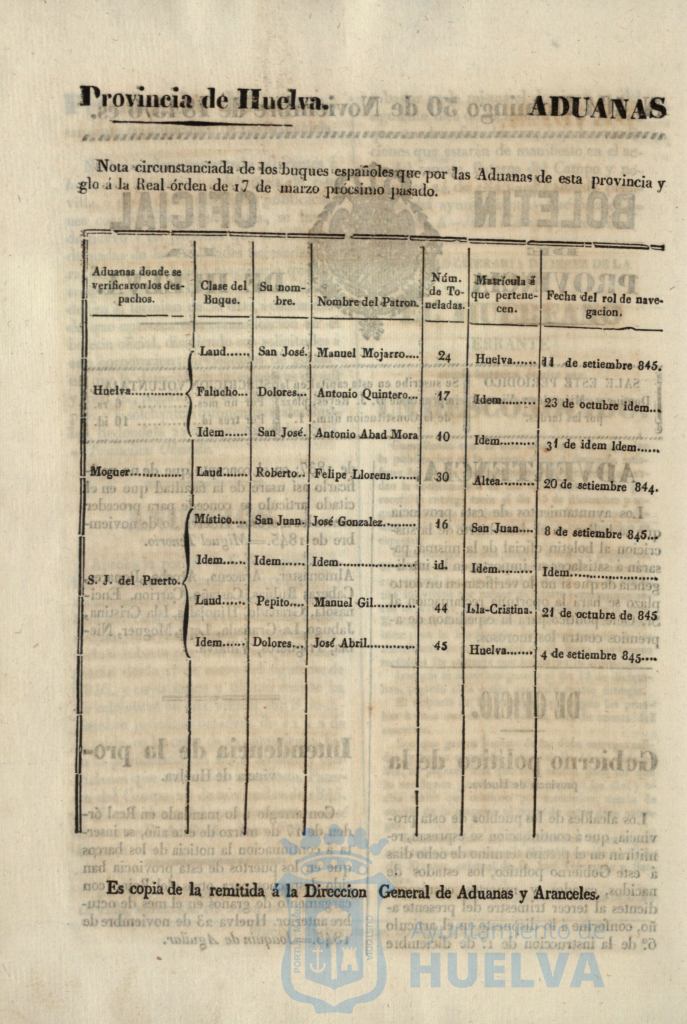 Provincia de Huelva. ADUANAS
Nota circunstanciada de los buques españoles que por las Aduanas de esta provincia y
glo á la Real órden de 17 de marzo prócsimo pasado.
Aduanas donde se verificaron los despachos. Clase del Buque. Su nombre. Nombre del Patron. Núm. de Toneladas. Matrícula á que pertenecen. Fecha del rol de navegacion.
Laud...... San José. Manuel Mojarro.... 24 Huelva...... 11 de setiembre 845.
Huelva............ Falucho... Dolores... Antonio Quintero... 17 Idem......... 23 de octubre idem...
Idem...... San José. Antonio Abad Mora 10 Idem......... 31 de idem Idem.....
Moguer........... Laud...... Roberto.. Felipe Llorens....... 30 Altea......... 20 de setiembre 844.
Místico.... San Juan. José Gonzalez......... 16 San Juan.... 8 de setiembre 845...
S. J. del Puerto. Idem...... Idem..... Idem.................. id. Idem......... Idem....................
Laud...... Pepito.... Manuel Gil........... 44 Isla-Cristina. 21 de octubre de 845
Idem...... Dolores... José Abril............. 45 Huelva....... 4 de setiembre 845....
Es copia de la remitida á la Direccion General de Aduanas y Aranceles.
Ayuntamiento de
HUELVA